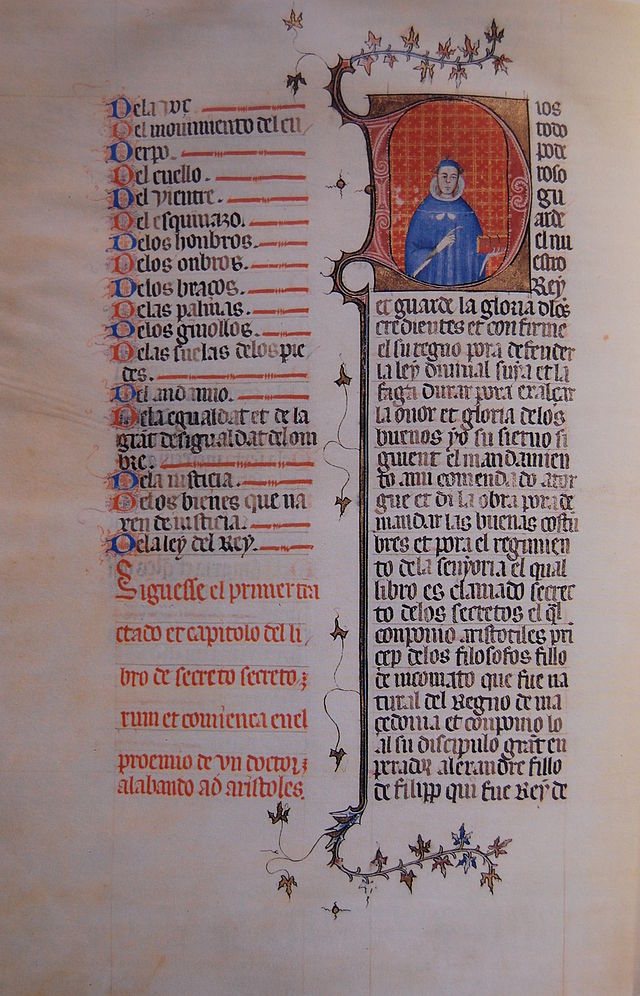 De la voc
Del mouimiento del cu
Derpo.
Del cuello.
Del vientre.
Del esquinazo.
Delos honbros.
Delos onbros.
Delos bracos.
Delas palmas.
Delos ginollos.
Delas suelas delos pie
des.
Del andamio.
Dela egualdat et de la
grant desigualdat del om
bre.
Dela iusticia.
Delos bienes que na
xen de iusticia.
Dela ley del Rey.
Siguesse el primer tra
ctado et capitolo del li
bro de secreto secreto
rum et comiença en el
prohemio de vn doctor
alabando ad aristoles
Dios
todo
pode
roso
gu
arde
el nu
estro
Rey
et guarde la gloria dlos
creedientes et confirme
el su regno pora defender
la ley diuinal suya et la
faga durar pora exalçar
la onor et gloria delos
buenos yo su sieruo si
guient el mandamien
to ami comendado ator
gue et di la obra pora de
mandar las buenas costu
bres et pora el regimien
to dela senyoria el qual
libro es clamado secre
to delos secretos el ql
conpuso aristotiles prin
cep delos filosofos fillo
de nicomaco que fue na
tural del Regno de ma
cedonia et conpuso lo
al su discipulo grant en
perador alexandre fillo
de filipp qui fue Rey de